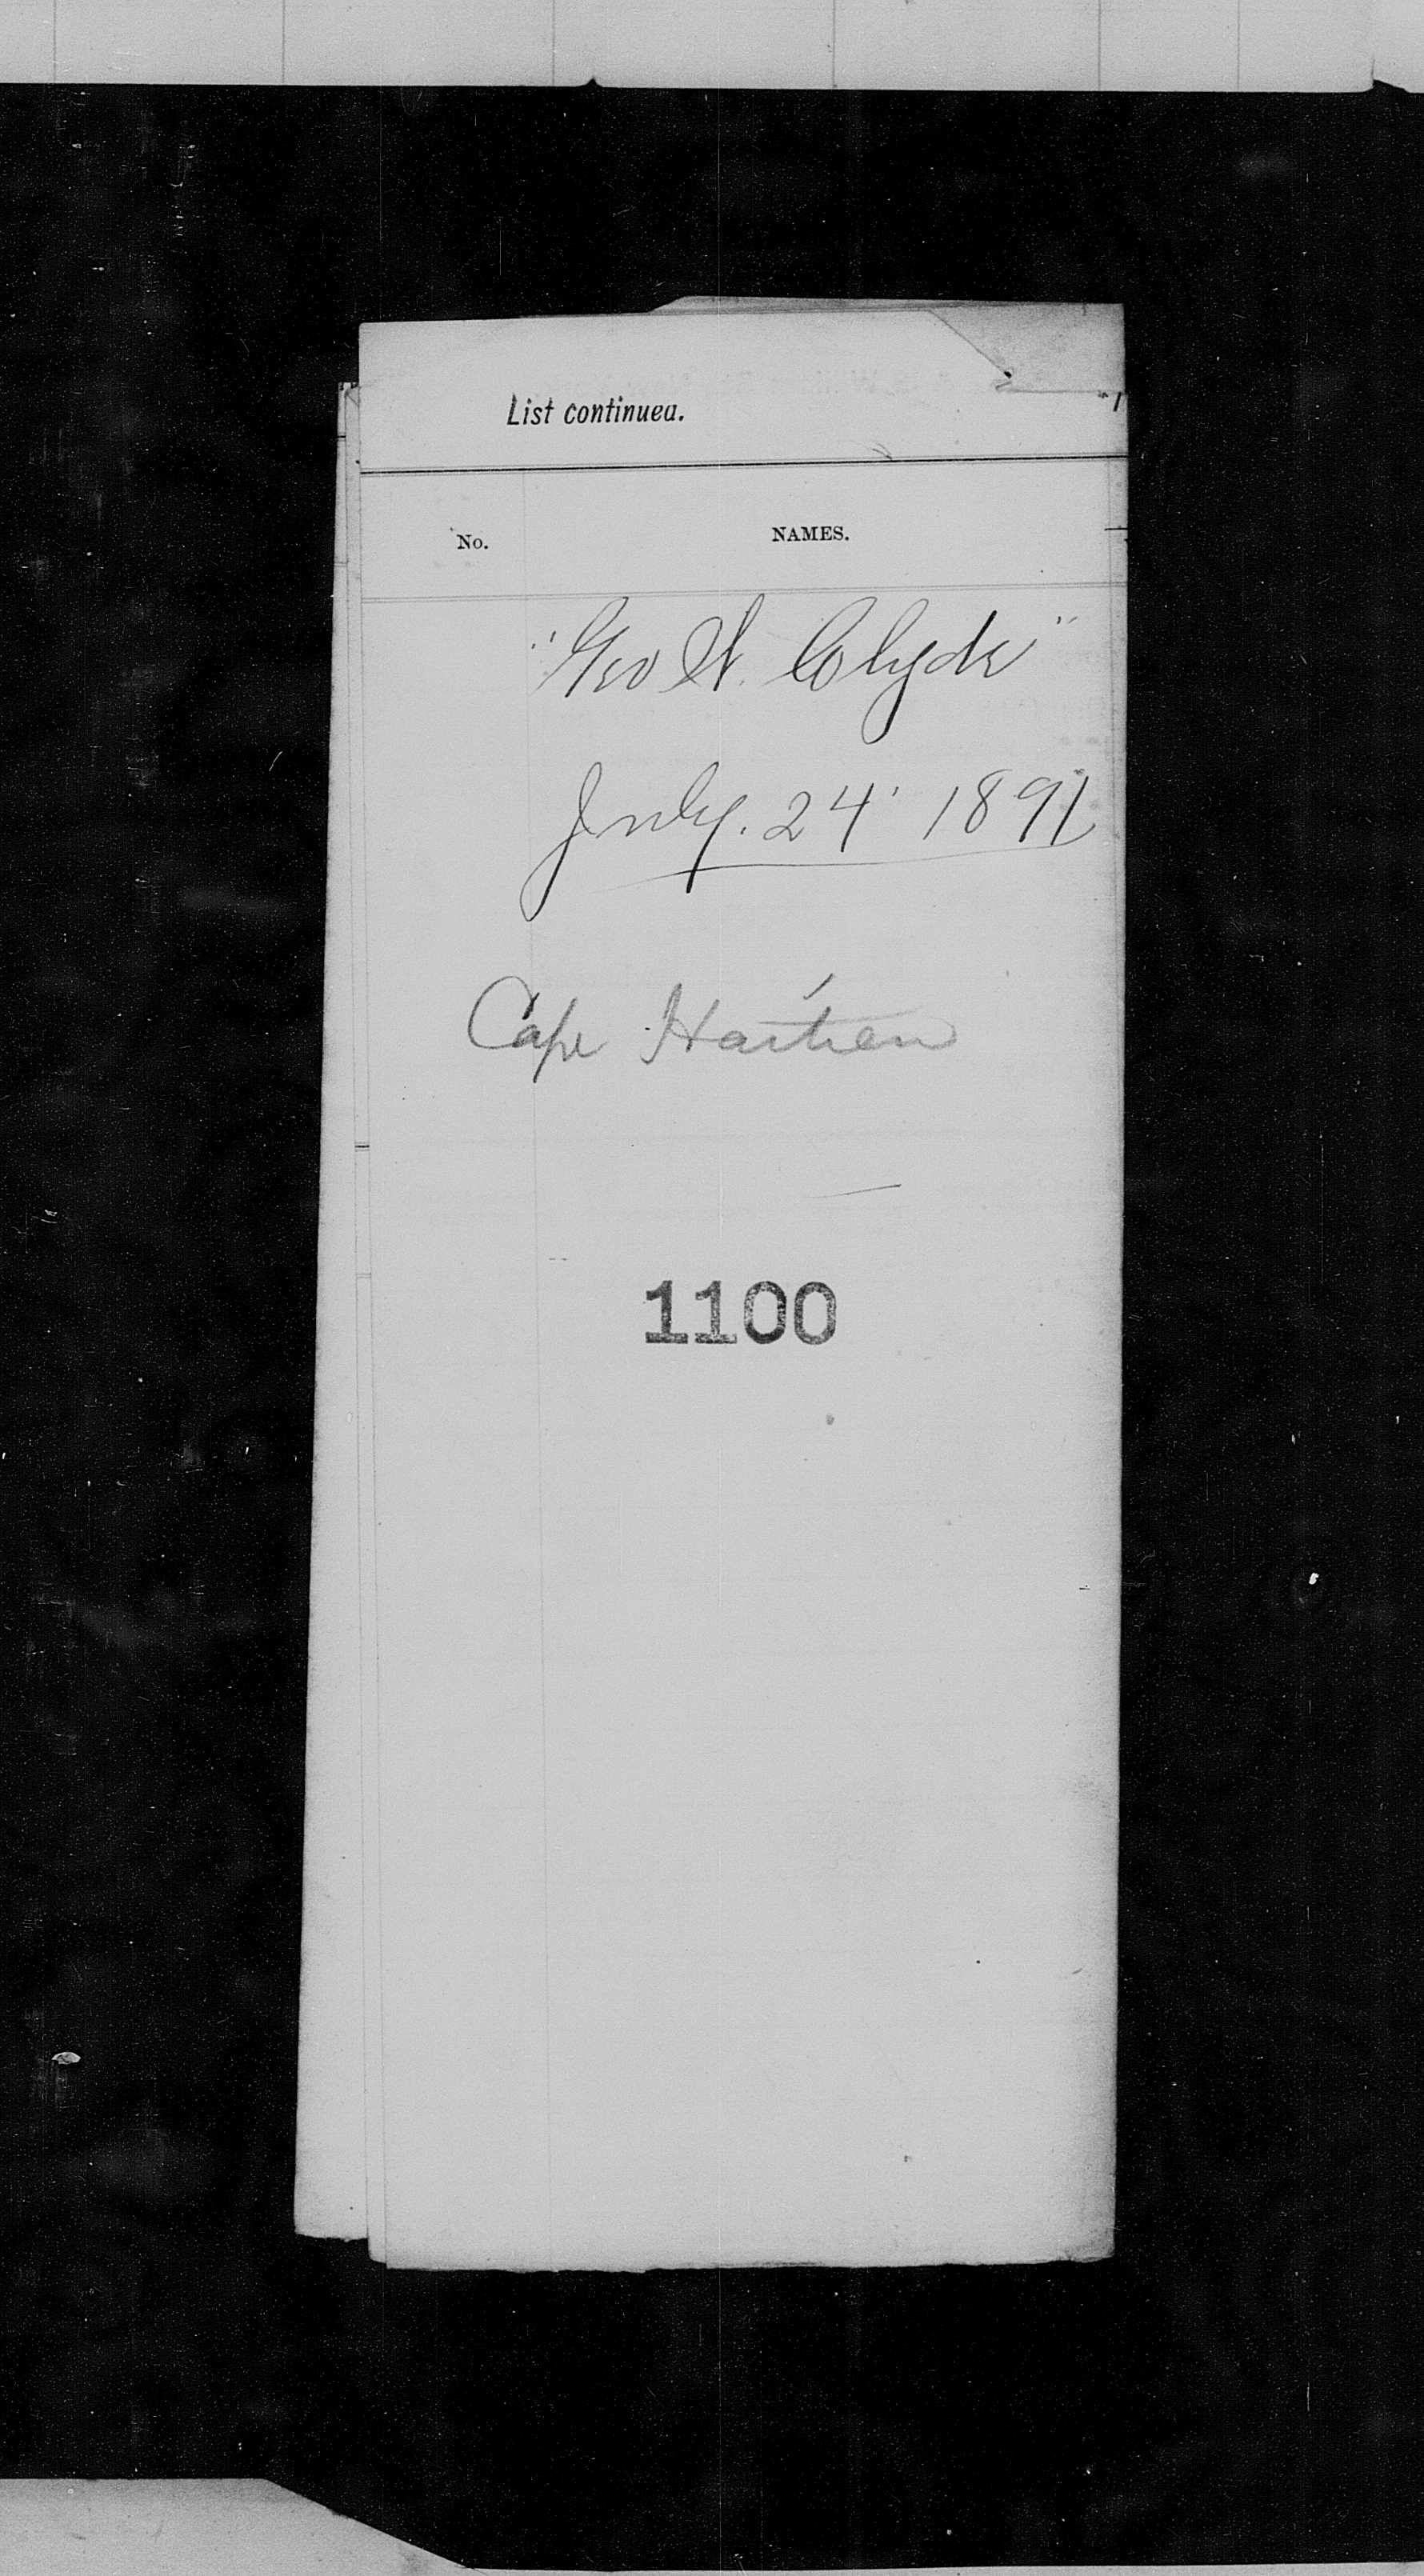 List continued.
No. NAMES.
"Geo W. Clyde"
July. 24' 1891
Cape Haitien
1100